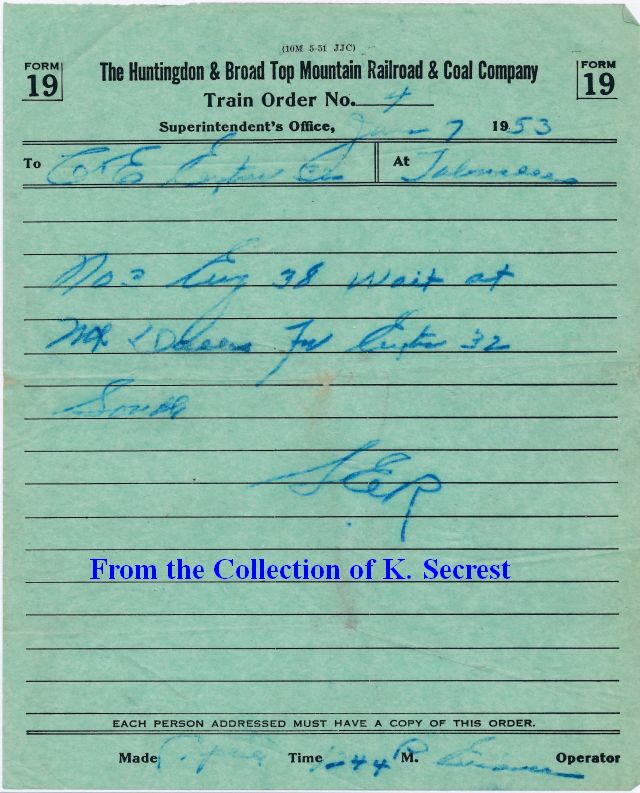 (10M 5-51 JJC)
FORM 19
The Huntingdon & Broad Top Mountain Railroad & Coal Company
FORM 19
Train Order No. 4
Superintendent's Office, Jan 7 1953
To C&E Extra At
No 2 Eng 38 Wait at
for Extra 32
South
SER
From the Collection of K. Secrest
EACH PERSON ADDRESSED MUST HAVE A COPY OF THIS ORDER.
Made Time 1244 P M. Operator